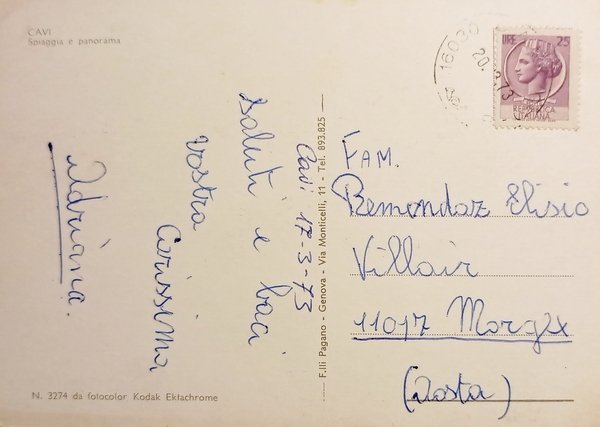 CAVI
Spiaggia e panorama
Cavi 17-3-73
Saluti e baci
vostra
Carissima
Adriana.
F.lli Pagano - Genova - Via Monticelli, 11 - Tel. 893.825
LIRE 25
REPUBBLICA
ITALIANA
16030
20.3.73
FAM.
Remondaz Elisio
Villair
11017 Morgex
(Aosta)
N. 3274 da fotocolor Kodak Ektachrome